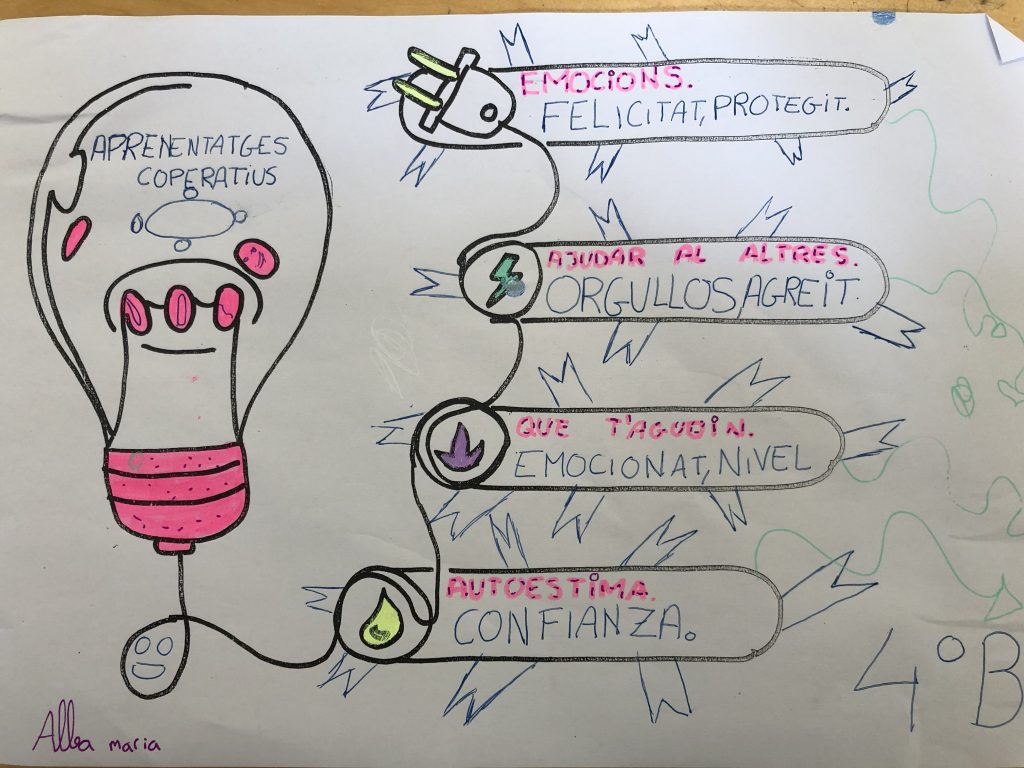 APRENENTATGES
COPERATIUS
EMOCIONS.
FELICITAT, PROTEGIT.
AJUDAR AL ALTRES.
ORGULLOS, AGREIT.
QUE T'AGUDIN.
EMOCIONAT, NIVEL
AUTOESTIMA.
CONFIANZA.
4º B
Alba maria